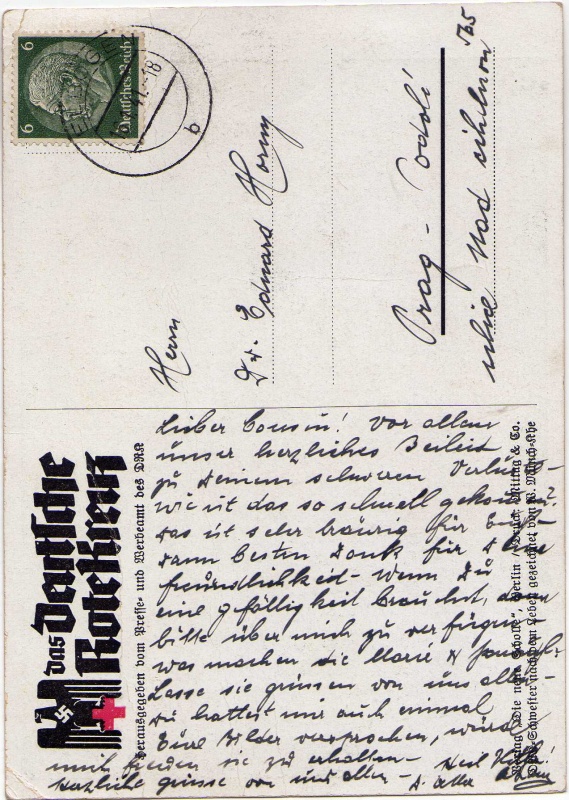 6 6
Deutsches Reich
18
b
Herrn
Dr. Eduard Horny
Prag -
ulice Nad 765
das Deutsche
Rote Kreuz
Herausgegeben vom Presse- und Werbeamt des DRK
Verlag „Die neue Scholle“, Berlin / Druck: Mittag & Co.
DRK-Schwester nach dem Leben gezeichnet von W. Münch-Khe
Lieber Cousin! Vor allem
unser herzliches Beileid
zu Deinem schweren Verluste -
wie ist das so schnell gekommen?
das ist sehr traurig für Euch -
dann besten Dank für Deine
freundlichkeit - Wenn Du
eine gefälligkeit brauchst, dann
bitte über mich zu verfügen
was machen die Marie &
Lasse sie grüssen von uns allen -
Du hattest mir auch einmal
Eure Bilder versprochen, würde
mich freuen sie zu erhalten -
Herzliche grüsse von uns allen -